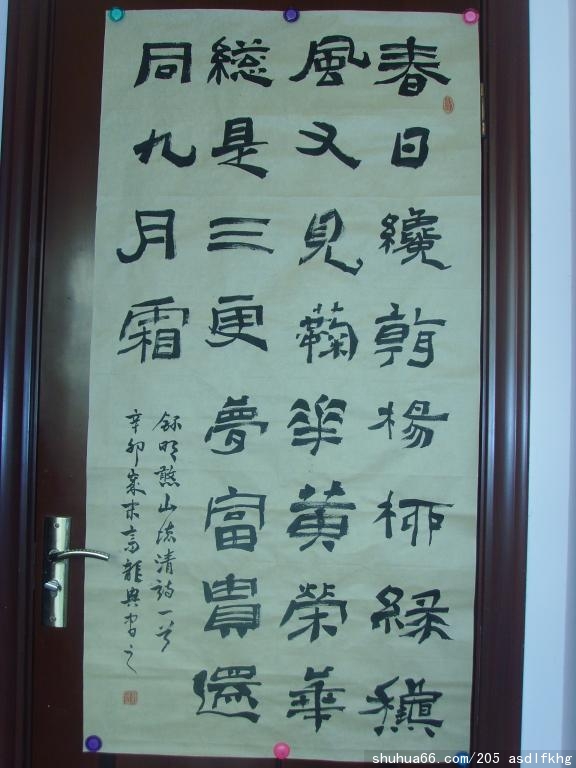 春日纔看楊柳綠龝
風又見蘜華黃榮華
緫是三更夢富貴還
同九月霜
錄明憨山德清詩一首
辛卯歲末高龍興書之
shuhua66.com/205 asdlfkhg